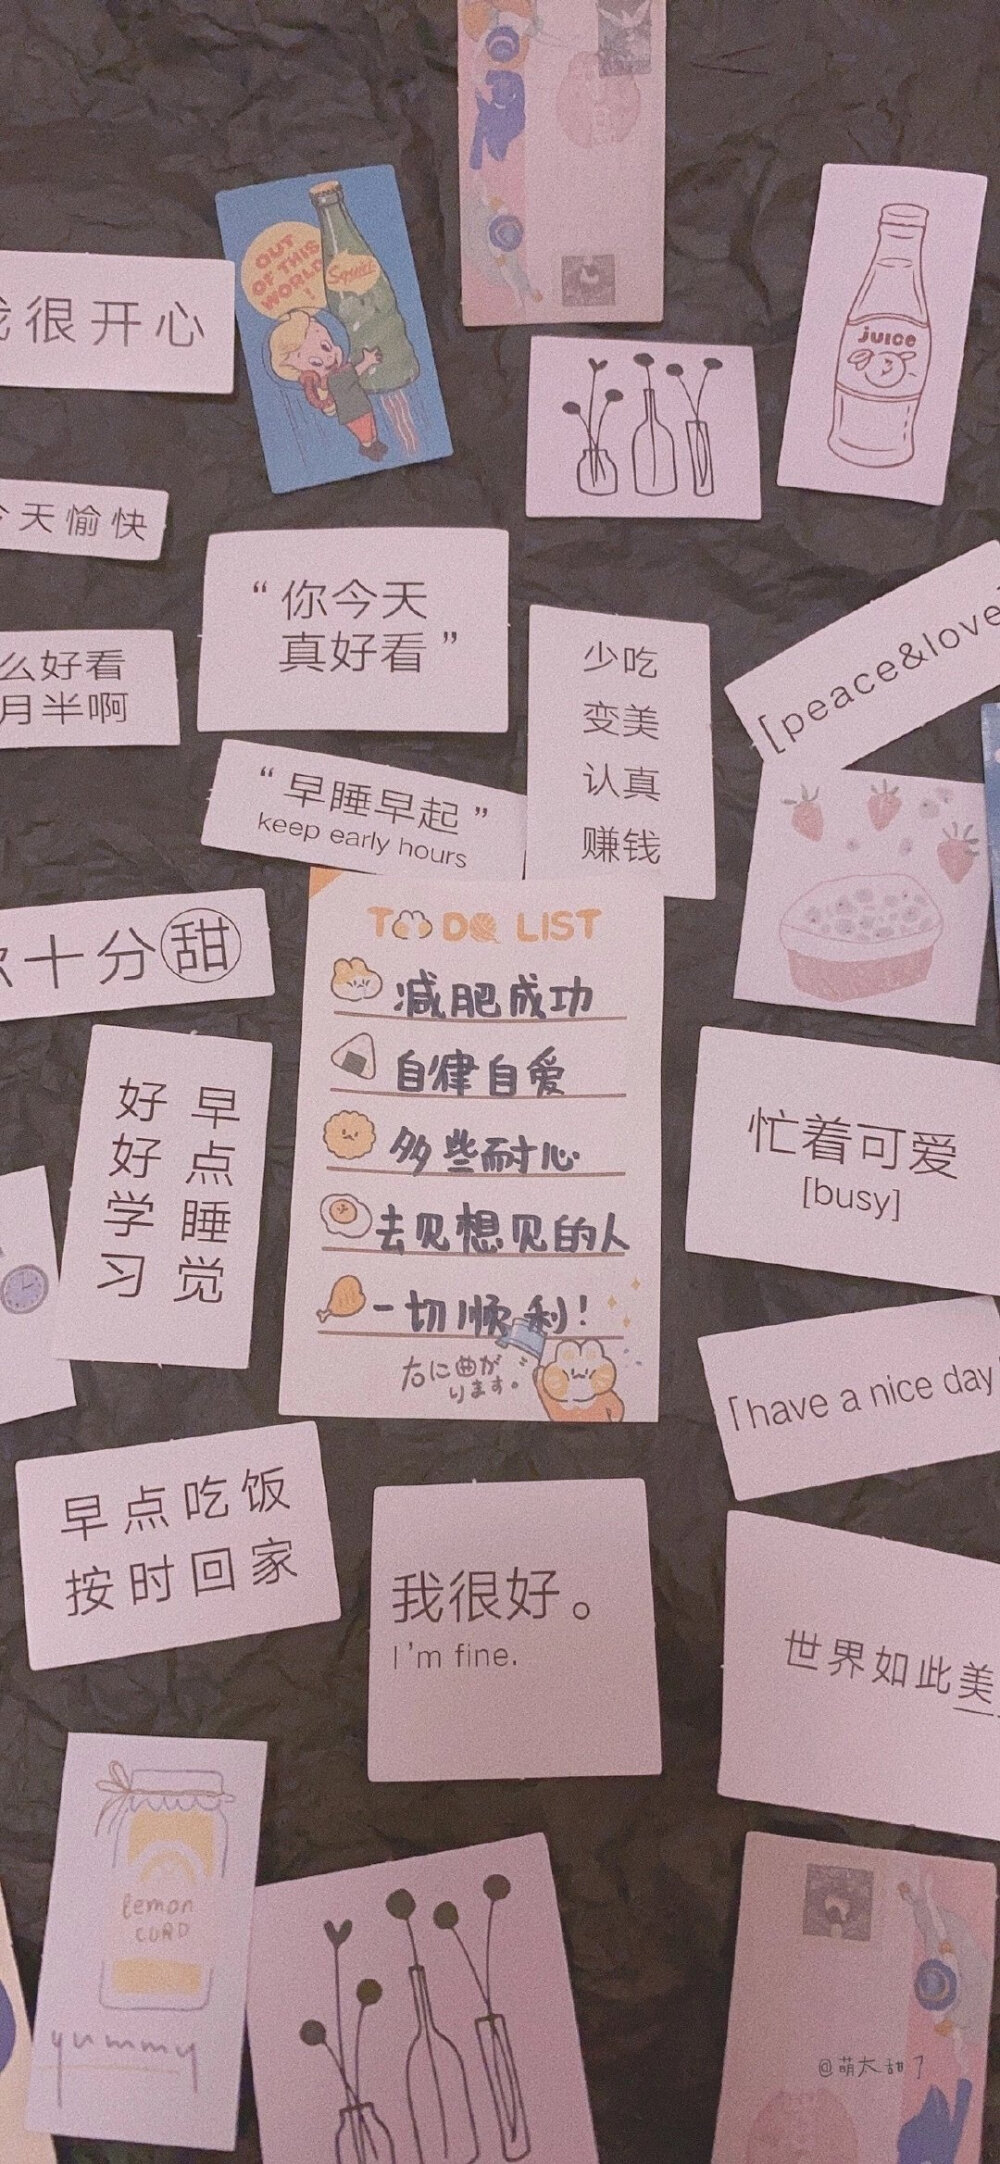 OUT
OF THIS
WORLD
!
Squirt
很开心
JUICE
天愉快
“你今天
真好看”
么好看
月半啊
少吃
变美
认真
赚钱
[peace&love
“早睡早起”
keep early hours
十分甜
TO DO LIST
减肥成功
自律自爱
多些耐心
去见想见的人
一切顺利!
右に曲が
ります。
早点睡觉
好好学习
忙着可爱
[busy]
「have a nice day
早点吃饭
按时回家
我很好。
I'm fine.
世界如此美
lemon
CURD
yummy
@萌太甜了